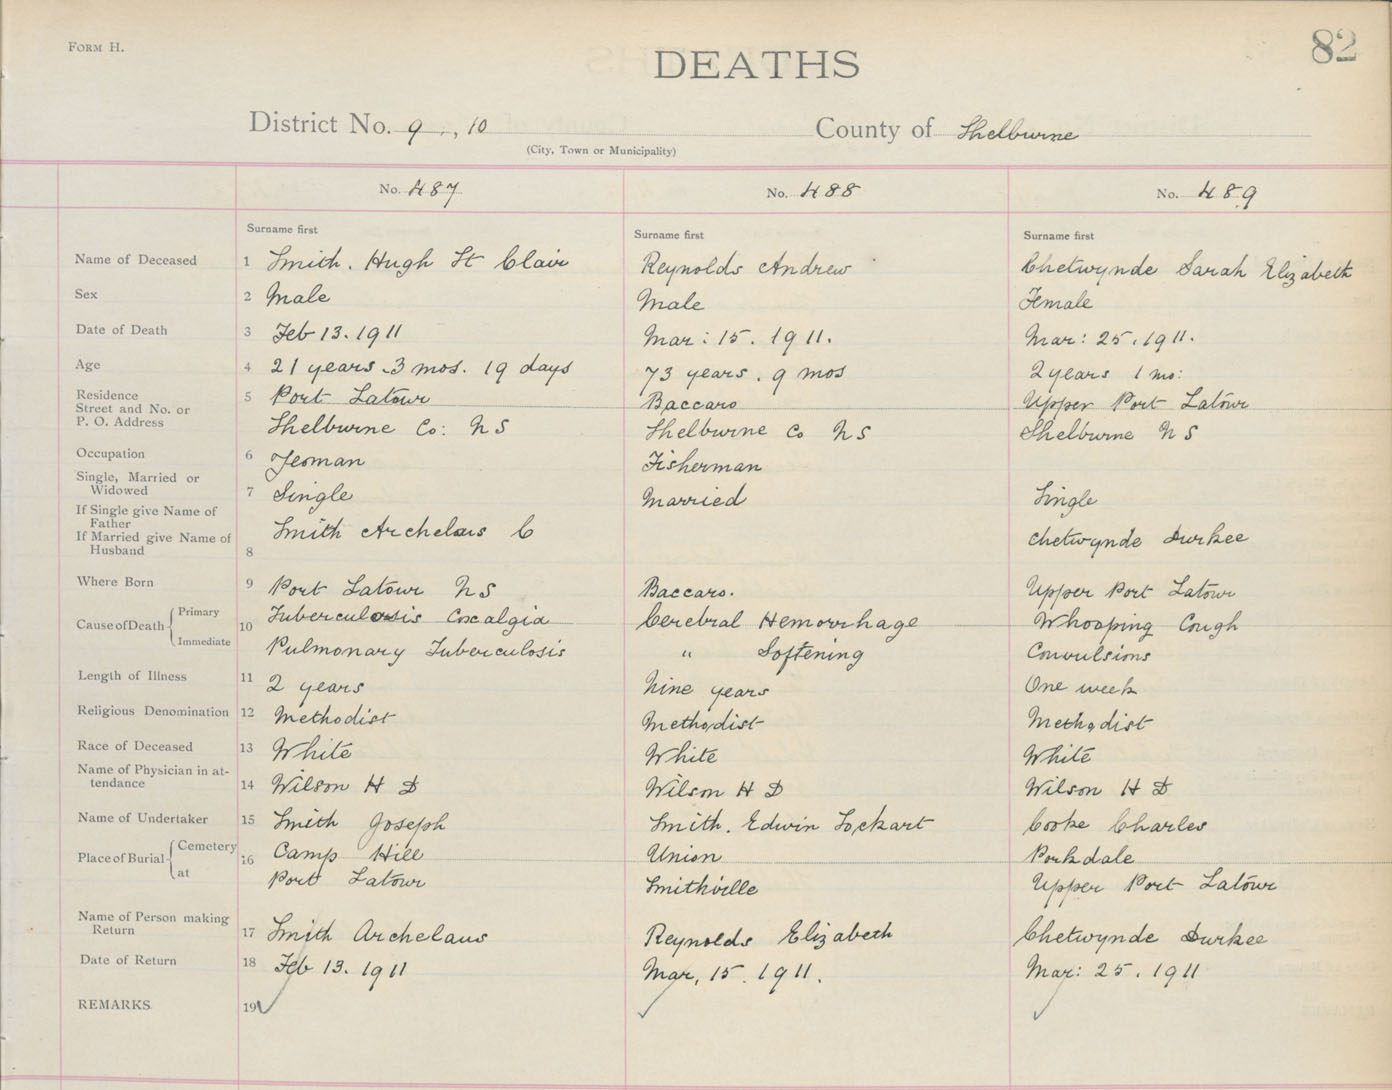 FORM H.
82
DEATHS
District No. 9, 10 County of Shelburne
(City, Town or Municipality)
No. 487 No. 488 No. 489
Surname first Surname first Surname first
Name of Deceased 1 Smith. Hugh St Clair Reynolds Andrew Chetwynde Sarah Elizabeth
Sex 2 Male Male Female
Date of Death 3 Feb 13. 1911 Mar: 15. 1911. Mar: 25. 1911.
Age 4 21 years 3 mos. 19 days 73 years. 9 mos 2 years 1 mo:
Residence 5 Port Latour Baccaro Upper Port Latour
Street and No. or
P. O. Address Shelburne Co: N S Shelburne Co N S Shelburne N S
Occupation 6 Yeoman Fisherman
Single, Married or
Widowed 7 Single Married Single
If Single give Name of
Father Smith Archelaus C Chetwynde Durkee
If Married give Name of
Husband 8
Where Born 9 Port Latour N S Baccaro. Upper Port Latour
Cause of Death { Primary 10 Tuberculosis Coxalgia Cerebral Hemorrhage Whooping Cough
Immediate Pulmonary Tuberculosis " Softening Convulsions
Length of Illness 11 2 years Nine years One week
Religious Denomination 12 Methodist Methodist Methodist
Race of Deceased 13 White White White
Name of Physician in at-
tendance 14 Wilson H D Wilson H D Wilson H D
Name of Undertaker 15 Smith Joseph Smith. Edwin Lockart Cooke Charles
Place of Burial { Cemetery 16 Camp Hill Union Porkdale
at Port Latour Smithville Upper Port Latour
Name of Person making
Return 17 Smith Archelaus Reynolds Elizabeth Chetwynde Durkee
Date of Return 18 Feb 13. 1911 Mar, 15. 1911. Mar: 25. 1911
REMARKS 19